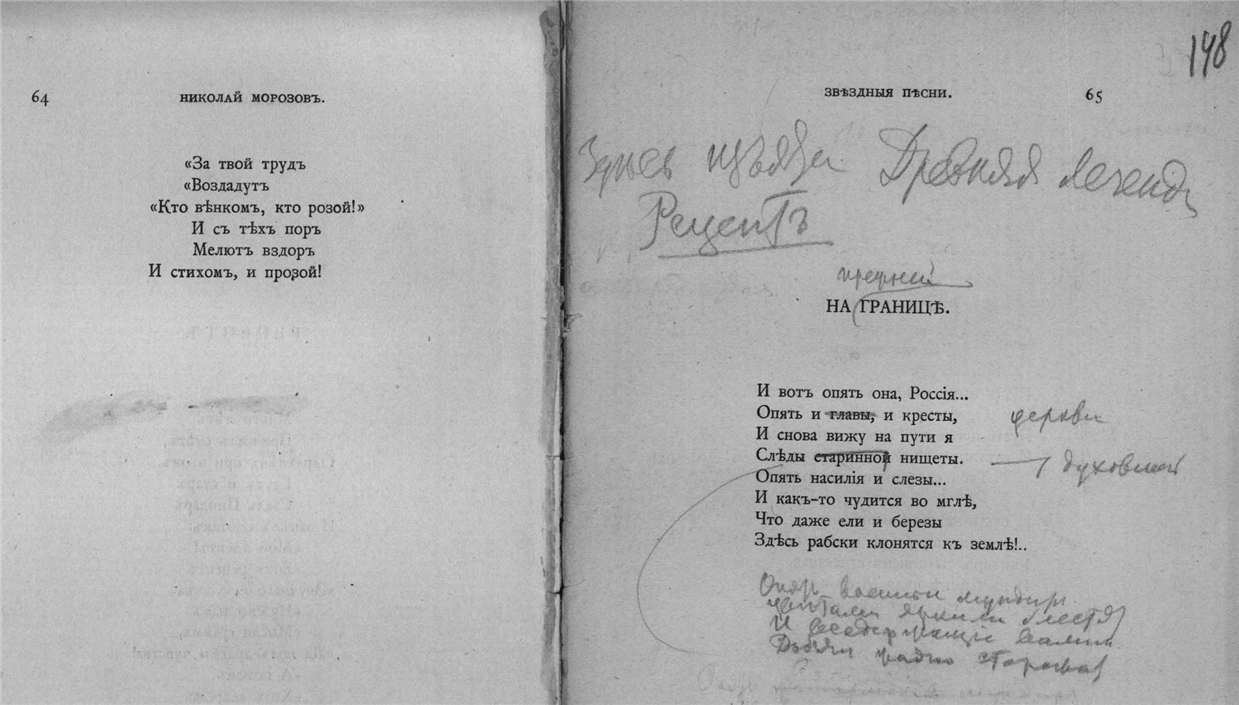 64
НИКОЛАЙ МОРОЗОВЪ.
«За твой трудъ
«Воздадутъ
«Кто вѣнкомъ, кто розой!»
И съ тѣхъ поръ
Мелютъ вздоръ
И стихомъ, и прозой!
148
ЗВѢЗДНЫЯ ПѢСНИ.
65
Древняя легенда
Рецептъ
прежней
НА ГРАНИЦѢ.
И вотъ опять она, Россія...
Опять и главы, и кресты,
церкви
И снова вижу на пути я
Слѣды старинной нищеты.
духовной
Опять насилія и слезы...
И какъ-то чудится во мглѣ,
Что даже ели и березы
Здѣсь рабски клонятся къ землѣ!..
Опять военные мундиры
блестят
И